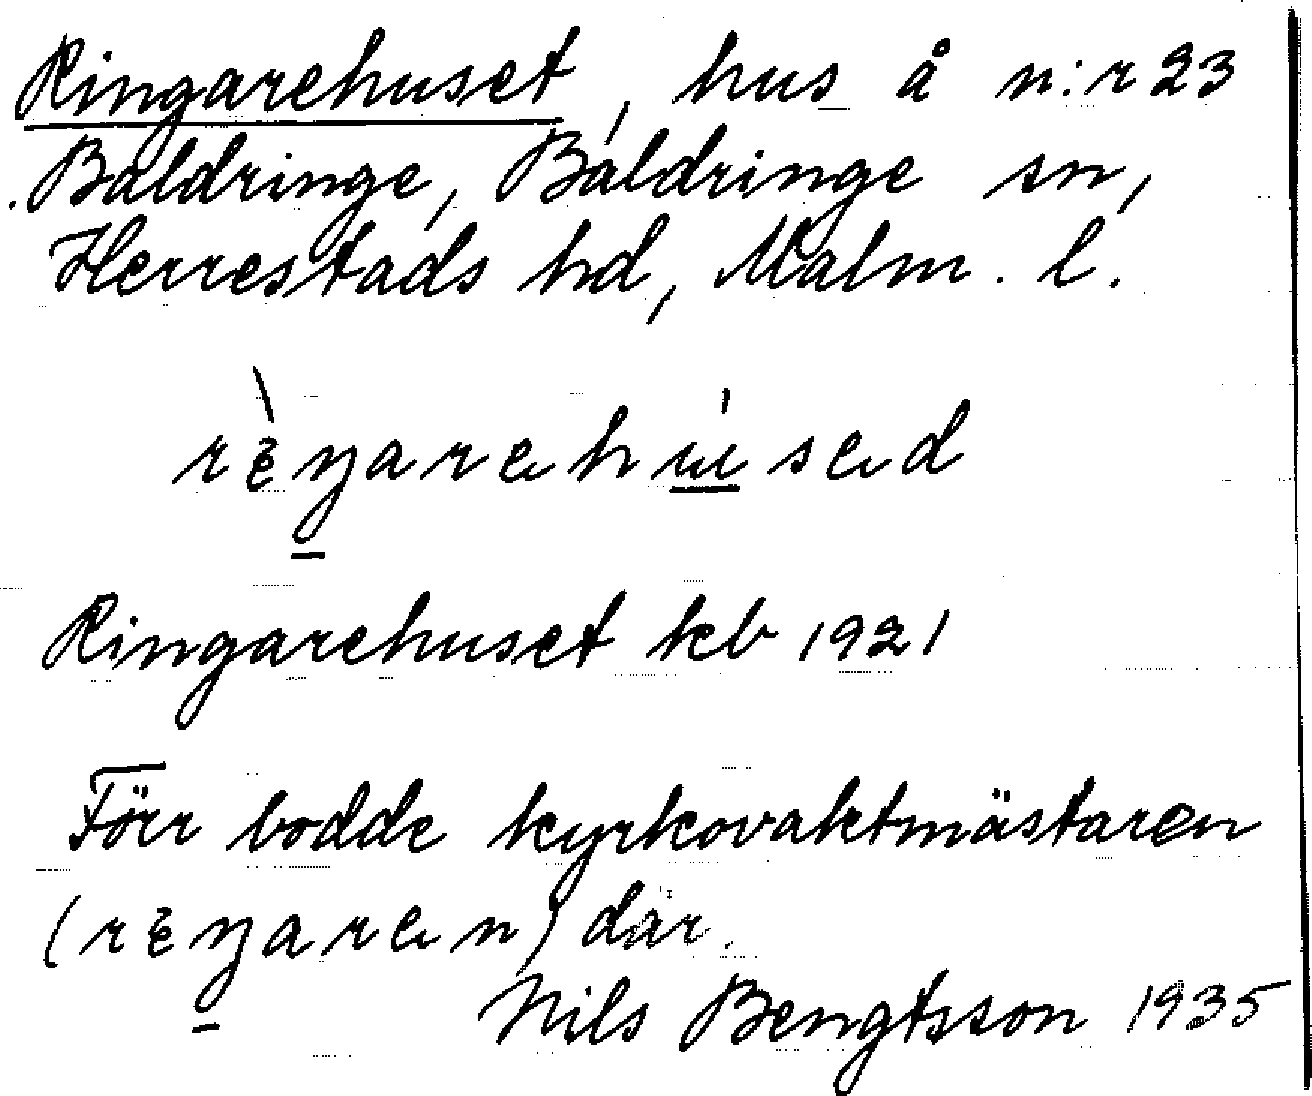 Ringarehuset, hus å n:r 23
Baldringe, Baldringe sn,
Herrestads hd, Malm. l.
Ringarehuset kb 1921
Förr bodde kyrkovaktmästaren
där.
Nils Bengtsson 1935